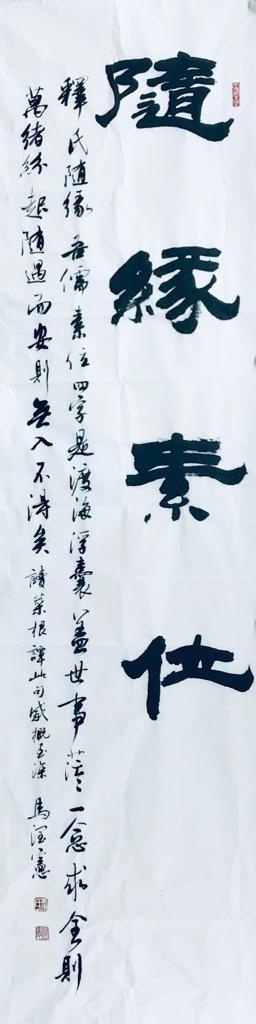 隨緣素位
釋氏隨緣吾儒素位四字是渡海浮囊蓋世事茫々一念求全則
萬緒紛起隨遇而安則無入不得矣讀菜根譚此句感概至深馬